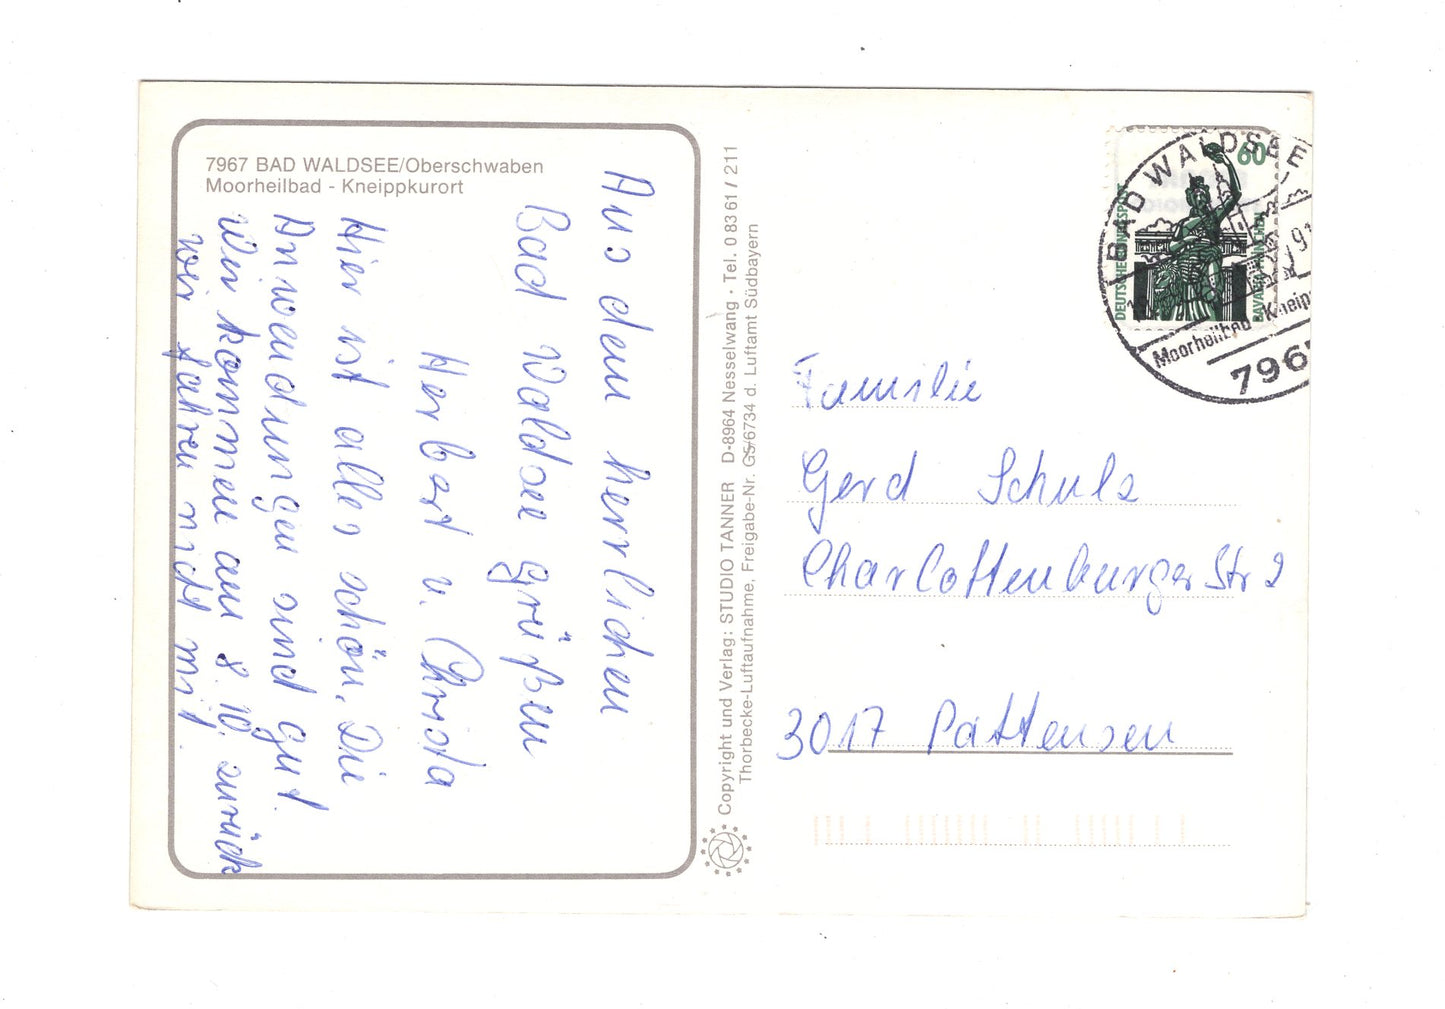 7967 BAD WALDSEE/Oberschwaben
Moorheilbad - Kneippkurort
Aus dem herrlichen
Bad Waldsee grüßen
Herbert u. Christa
Hier ist alles schön, Die
Anwendungen sind gut.
Wir kommen am 8.10. zurück
wir fahren nicht mit.
Copyright und Verlag: STUDIO TANNER D-8964 Nesselwang · Tel. 0 83 61 / 211
Thorbecke-Luftaufnahme, Freigabe-Nr. G5/6734 d. Luftamt Südbayern
60
DEUTSCHE BUNDESPOST
BAVARIA MÜNCHEN
BAD WALDSEE
91
Moorheilbad - Kneip
7967
Familie
Gerd Schulz
Charlottenburger Str 2
3017 Pattensen